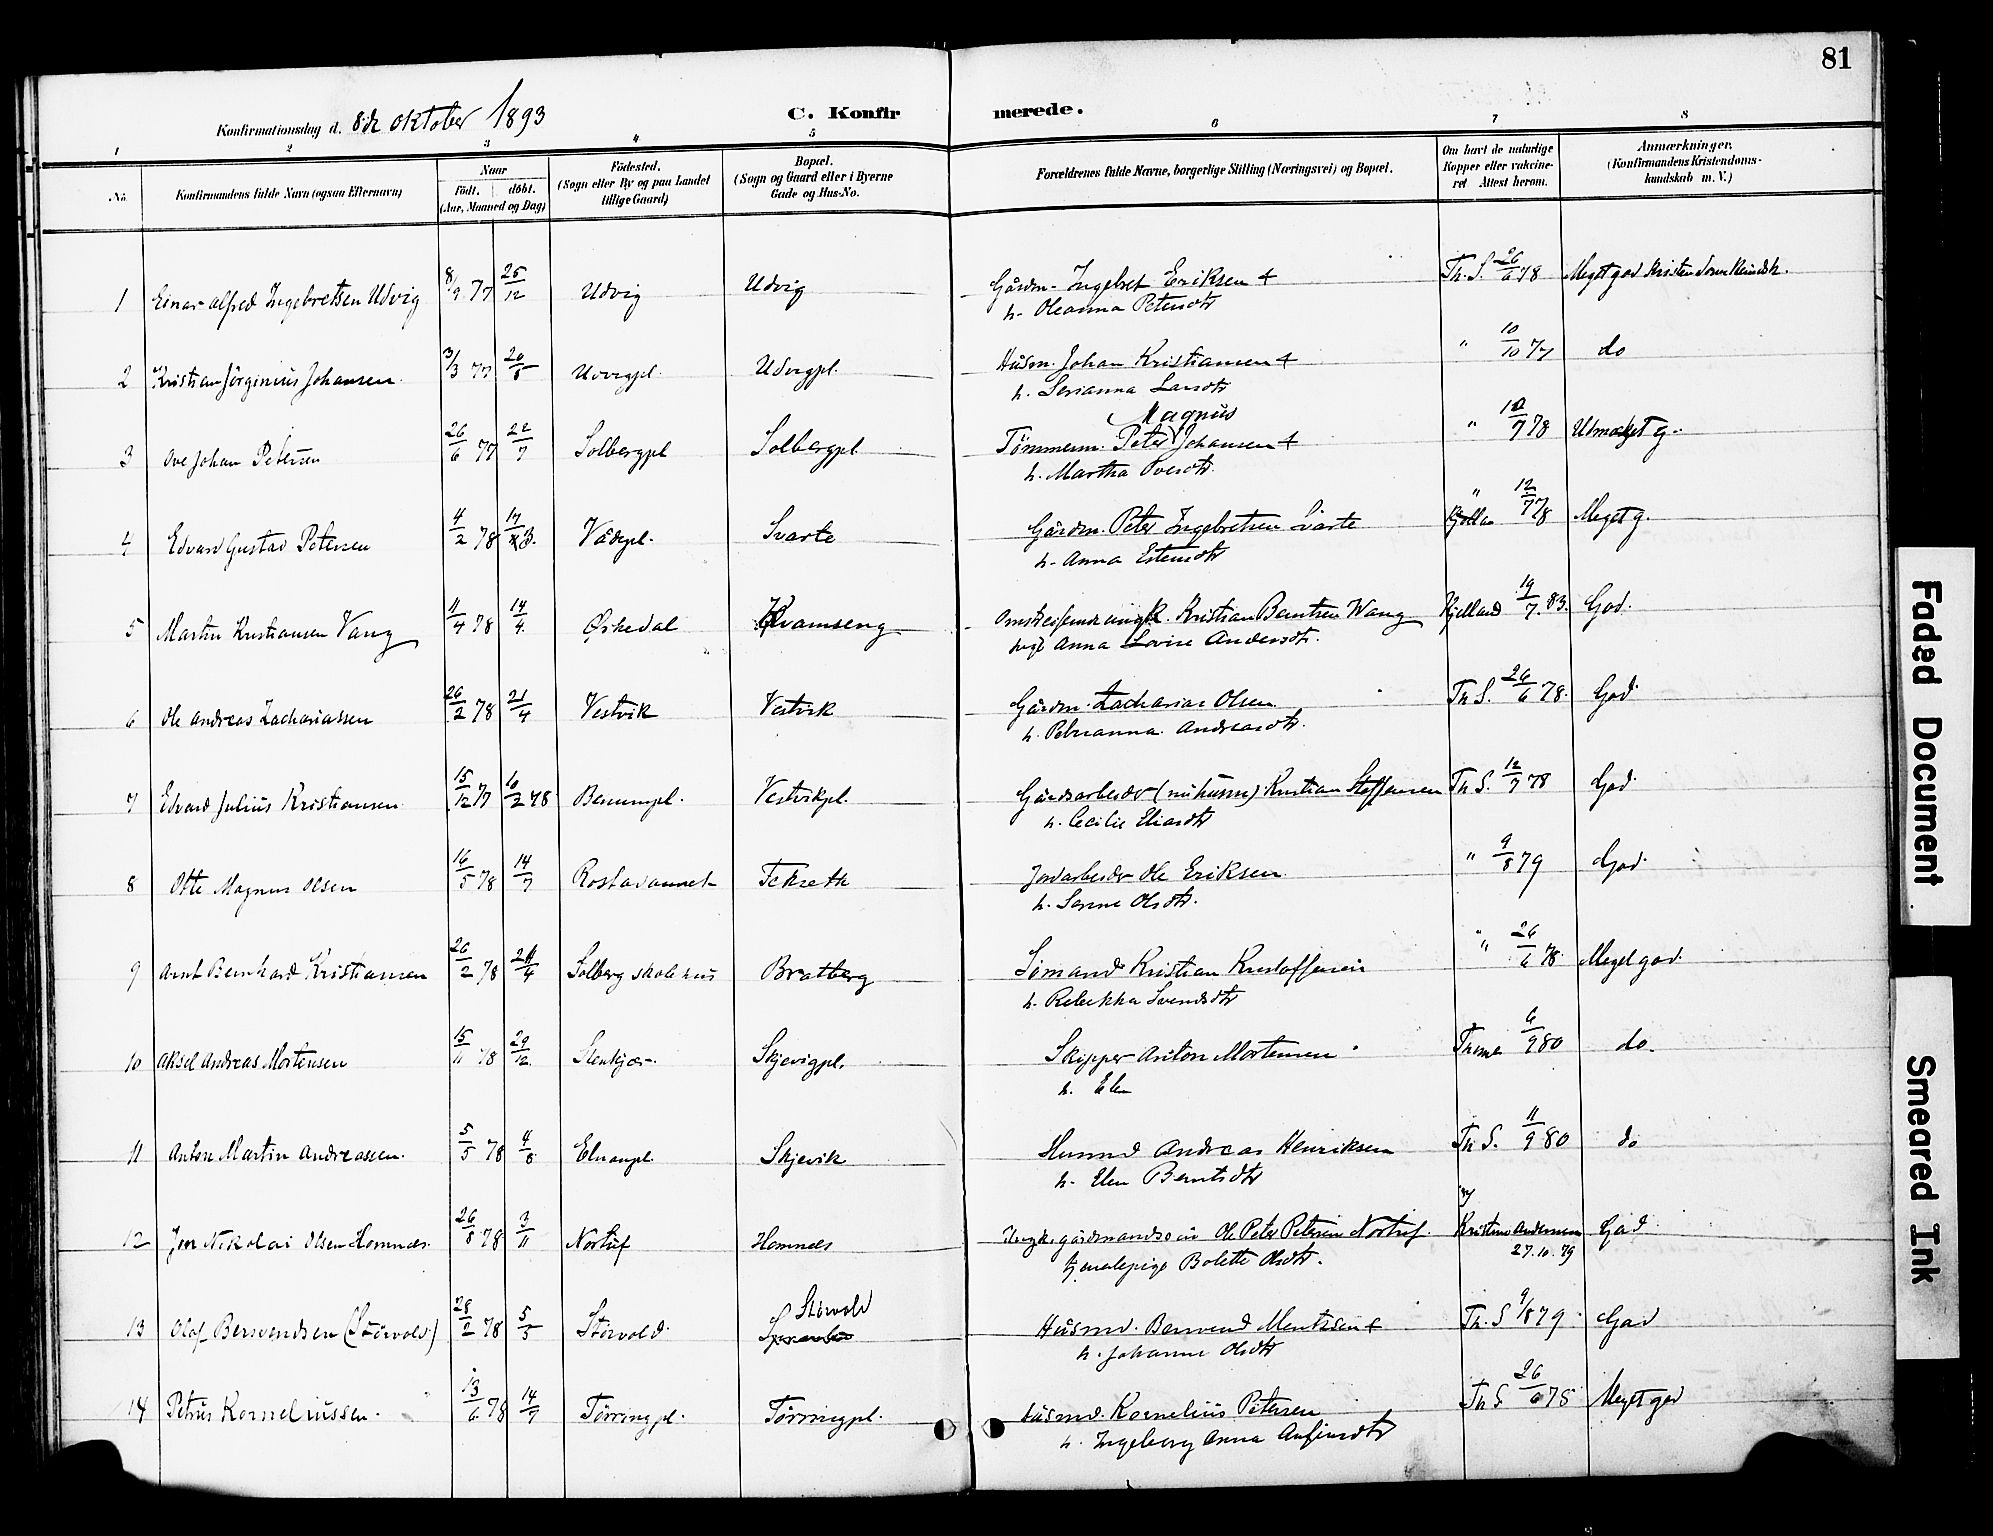 81
Konfirmationsdag d. 8de oktober 1893
C. Konfirmerede.
1 2 3 4 5 6 7 8
No. Konfirmandens fulde Navn (ogsaa Efternavn) Naar födt. döbt. (Aar, Maaned og Dag) Födested. (Sogn eller By og paa Landet tillige Gaard) Bopæl. (Sogn og Gaard eller i Byerne Gade og Hus-No. Forældrenes fulde Navne, borgerlige Stilling (Næringsvei) og Bopæl. Om havt de naturlige Kopper eller vakcineret Attest herom. Anmærkninger. (Konfirmandens Kristendomskundskab m. V.)
1 Einar Alfred Ingebretsen Udvig 8/9 77 26/12 Udvig Udvig Gårdm. Ingebret Eriksen + Th. S. 26/6 78 Meget god Kristendomskundsk.
h. Oleanna Petersdtr
2 Kristian Jörginius Johansen 3/3 77 20/5 Udvigpl. Udvigpl. Husm. Johan Kristiansen + " 10/10 77 do
h. Serianna Larsdtr
Magnus
3 Ove Johan Petersen 26/6 77 22/7 Solbergpl Solbergpl. Tømmerm. Peter Johansen + " 12/7 78 Udmærket g.
h. Martha Ovesdtr.
4 Edvard Gustav Petersen 4/2 78 17/3. Vådepl. Svarte Gårdm. Peter Ingebretsen Svarte " 12/7 78 Meget g.
h. Anna Estensdtr
5 Martin Kristiansen Vang 11/4 78 14/4. Öskedal Kvamseng Kristian Berntsen Wang Kjelland 19/7. 83. God.
Anna Lovise Andersdtr.
6 Ole Andreas Zachariassen 26/2 78 21/4 Vestvik Vestvik Gårdm. Zacharias Olsen Th S. 26/6 78. God
h. Petrianna Andreasdtr.
7 Edvard Julius Kristiansen 15/12 77 10/2 78 Benumpl. Vestvikpl. Gårdsarbeider (nu husm) Kristian Steffensen Th S. 12/7 78 God
h. Cecilie Eliasdtr
8 Otte Magnus Olsen 16/5 78 14/7 Rostadvannet Tekseth Jordarbeider Ole Eriksen " 9/8 79 God.
h. Serine Olsdtr.
9 Arnt Bernhard Kristiansen 26/2 78 21/4 Solberg skolehus Bratberg Sömand Kristian Kristoffersen " 26/6 78. Meget god.
h. Rebekka Svendsdtr
10 Aksel Andreas Mortensen 15/11 78 29/12. Stenkjær Skjevigpl. Skipper Anton Mortensen 6/9 80 do.
h. Elen
11 Anton Martin Andreassen. 5/5 78 Elnanpl. Skjevik Husmd Andreas Henriksen Th S. 11/9 80 do
h. Elen Berntsdtr
12 Jon Nikolai Olsen Homnes 26/8 78 3/11 Nortuf Homnes Ungk. gårdmandssön Ole Peter Petersen Nortuf. Kristine Andersen God
tj enslepige Bolette Olsdtr. 27.10.79
Störvold
13 Olof Bersvendsen (Störvold) 28/2 78 5/5 Störvold Husmd. Bersvend Mentzen + Th. S 9/8 79 God
h. Johanne Olsdtr
14 Petrus Korneliussen. 13/6 78 14/7 Törringpl. Törringpl. Husmd. Kornelius Petersen Th S 26/6 78 Meget god
h. Ingeborg Anna Anfinsdtr
Faded Document
Smeared Ink